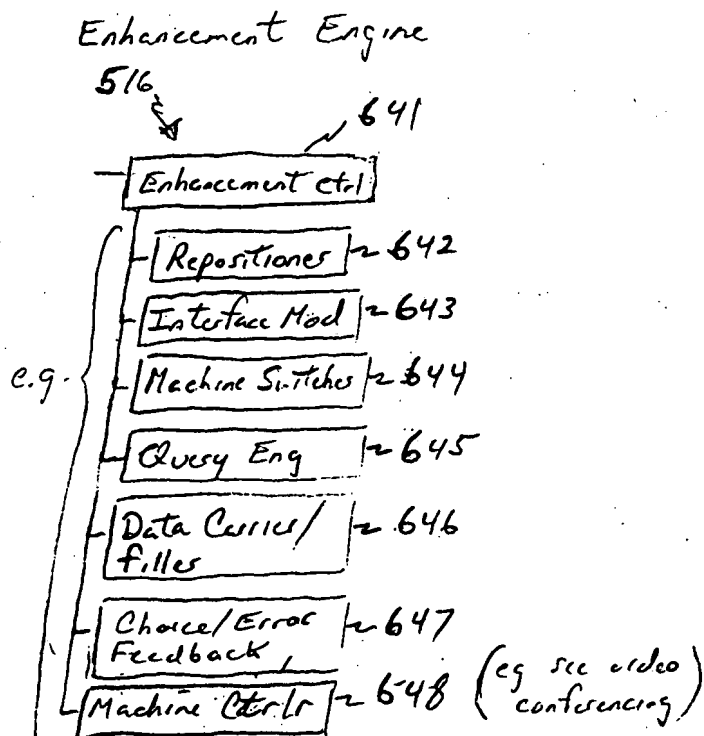 Enhancement Engine
516
641
Enhancement Ctrl
Repositioner 642
Interface Mod 643
e.g.
Machine Switcher 644
Query Eng 645
Data Carrier/ 646
filler
Choice/Error 647
Feedback
Machine Ctrlr 648 (eg see video
conferencing)